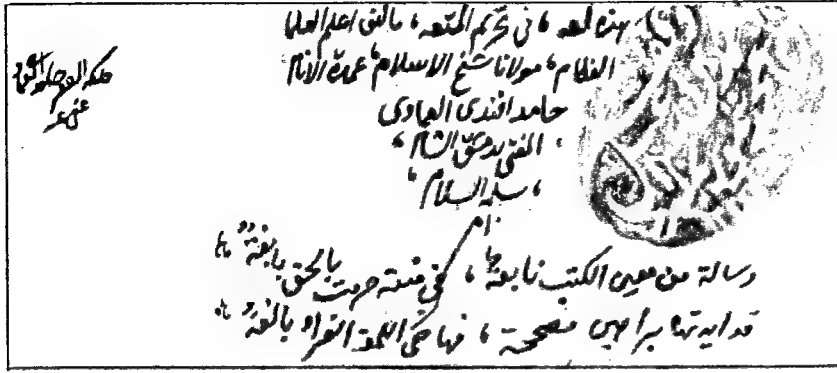 هذه لمعه ، في تحريم المتعه ، تأليف اعلم العلما
العلام ، مولانا شيخ الاسلام ، عمدة الانام
حامد افندي العمادي
، المفتي بدمشق الشام ،
، سلمه السلام ،
رسالة من معين الكتب نابعة ، في متعة حرمت بالحق
قد ايدتها براهين مصححة ، فها هي اللمعة الغراء